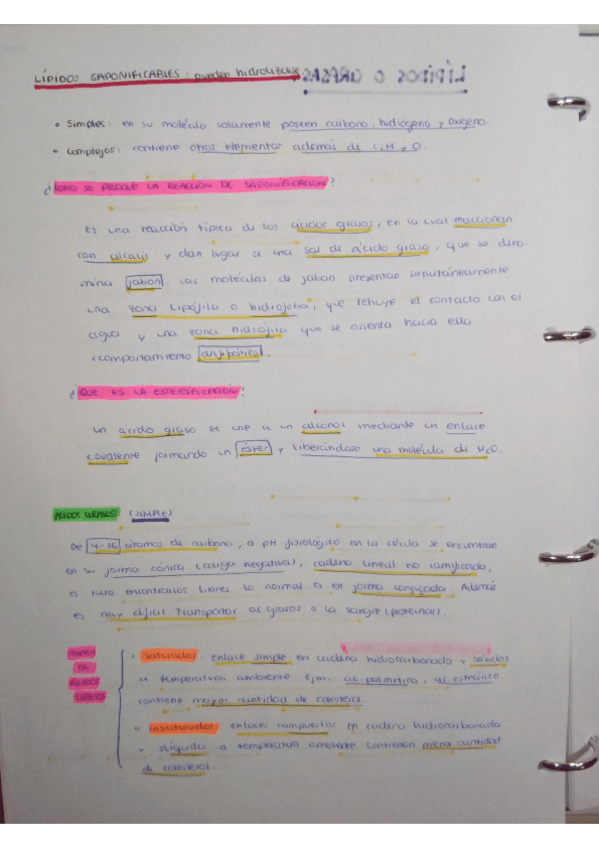 LÍPIDOS SAPONIFICABLES: pueden hidrolizarse
LÍPIDOS O GRASAS
• Simples: en su molécula solamente poseen carbono, hidrógeno y oxígeno.
• Complejos: contiene otros elementos además de C, H y O.
¿CÓMO SE PRODUCE LA REACCIÓN DE SAPONIFICACIÓN?
Es una reacción típica de los ácidos grasos, en la cual reaccionan
con álcalis y dan lugar a una sal de ácido graso, que se deno
mina jabón. Las moléculas de jabón presentan simultáneamente
una zona lipófila o hidrófoba, que rehuye el contacto con el
agua y una zona hidrófila que se orienta hacia ella
(comportamiento anfipático).
¿QUÉ ES LA ESTERIFICACIÓN?
Un ácido graso se une a un alcohol mediante un enlace
covalente formando un éster y liberándose una molécula de H2O.
ÁCIDOS GRASOS (SIMPLE)
De 4-36 átomos de carbono, a pH fisiológico en la célula se encuentran
en su forma iónica (carga negativa), cadena lineal no ramificada,
es raro encontrarlos libres lo normal es en forma conjugada. Además
es muy difícil transportar ac. grasos a la sangre (proteínas).
TIPOS
DE
ÁCIDOS
GRASOS
• Saturados: enlace simple en cadena hidrocarbonada y sólidos
a temperatura ambiente Ejm. ac. palmítico, ac. esteárico.
contiene mayor cantidad de colesterol.
• Insaturados: enlaces compuestos en cadena hidrocarbonada
y líquidos a temperatura ambiente contienen menor cantidad
de colesterol.